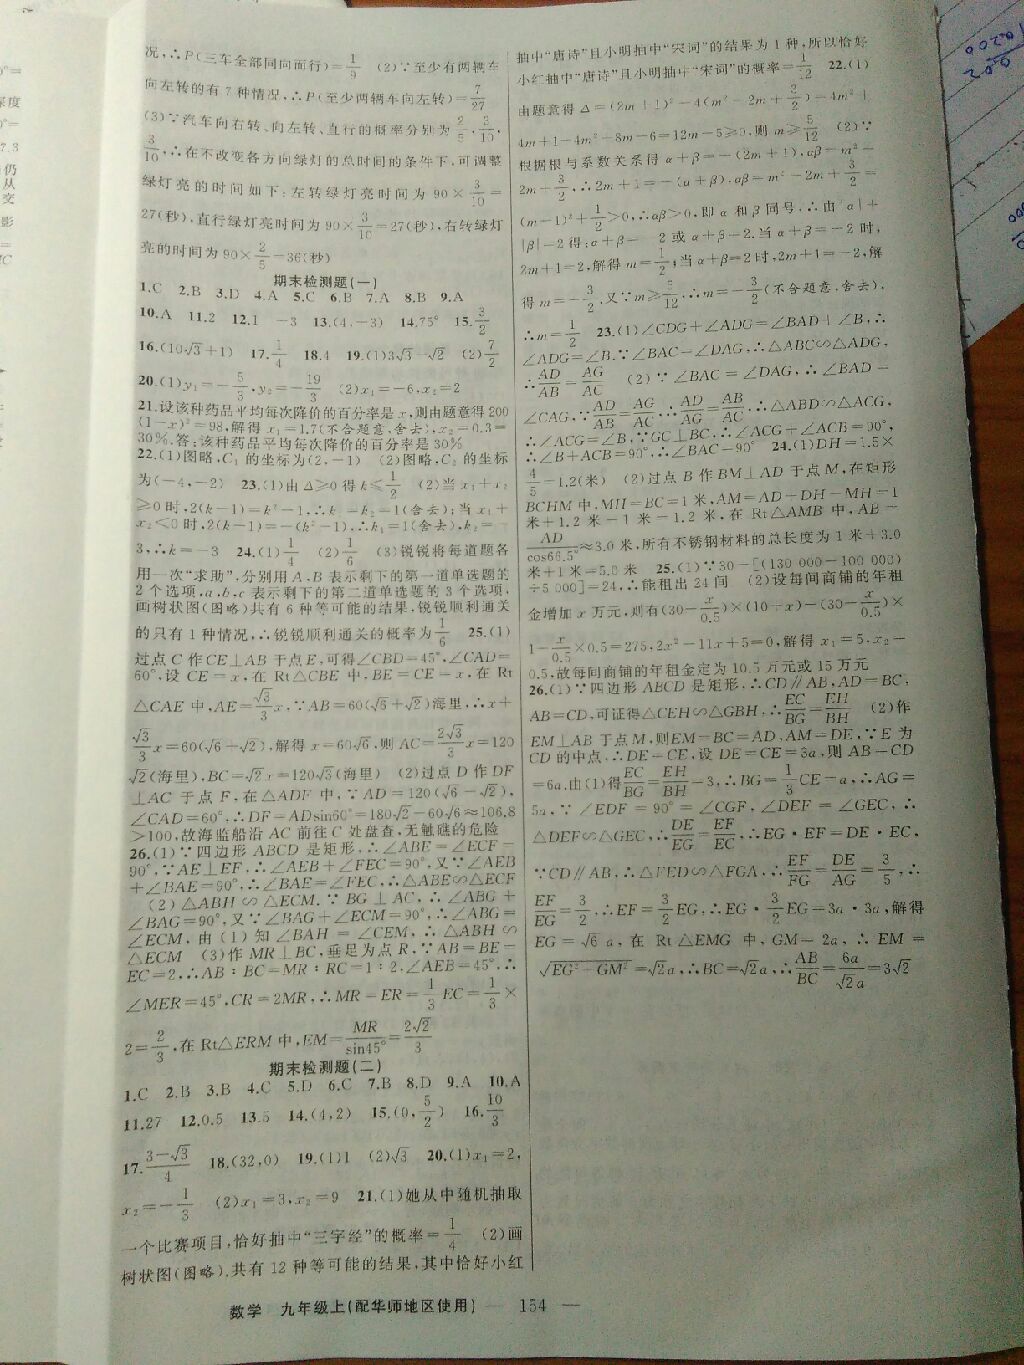 况,∴P(三车全部同向而行)=1/9 (2)∵至少有两辆车
向左转的有7种情况,∴P(至少两辆车向左转)=7/27
(3)∵汽车向右转、向左转、直行的概率分别为2/5,3/10,
3/10,∴在不改变各方向绿灯的总时间的条件下,可调整
绿灯亮的时间如下:左转绿灯亮时间为90×3/10=
27(秒),直行绿灯亮时间为90×3/10=27(秒),右转绿灯
亮的时间为90×2/5=36(秒)
期末检测题(一)
1.C 2.B 3.D 4.A 5.C 6.B 7.A 8.B 9.A
10.A 11.2 12.1 -3 13.(4,-3) 14.75° 15.3/2
16.(10√3+1) 17.1/4 18.4 19.(1)3√3-√2 (2)7/2
20.(1)y₁=-5/3,y₂=-19/3 (2)x₁=-6,x₂=2
21.设该种药品平均每次降价的百分率是x,则由题意得200
(1-x)²=98,解得x₁=1.7(不合题意,舍去),x₂=0.3=
30%.答:该种药品平均每次降价的百分率是30%
22.(1)图略,C₁的坐标为(2,-1) (2)图略,C₂的坐标
为(-4,-2) 23.(1)由△≥0得k≤1/2 (2)当x₁+x₂
≥0时,2(k-1)=k²-1,∴k₁=k₂=1(舍去);当x₁+
x₂<0时,2(k-1)=-(k²-1),∴k₁=1(舍去),k₂=-
3,∴k=-3 24.(1)1/4 (2)1/6 (3)锐锐将每道题各
用一次“求助”,分别用A,B表示剩下的第一道单选题的
2个选项,a,b,c表示剩下的第二道单选题的3个选项,
画树状图(图略)共有6种等可能的结果,锐锐顺利通关
的只有1种情况,∴锐锐顺利通关的概率为1/6 25.(1)
过点C作CE⊥AB于点E,可得∠CBD=45°,∠CAD=
60°,设CE=x,在Rt△CBE中,BE=CE=x,在Rt
△CAE中,AE=√3/3x,∵AB=60(√6+√2)海里,∴x+
√3/3x=60(√6+√2),解得x=60√6,则AC=2√3/3x=120
√2(海里),BC=√2x=120√3(海里) (2)过点D作DF
⊥AC于点F,在△ADF中,∵AD=120(√6-√2),
∠CAD=60°,∴DF=ADsin60°=180√2-60√6≈106.8
>100,故海监船沿AC前往C处盘查,无触礁的危险
26.(1)∵四边形ABCD是矩形,∴∠ABE=∠ECF=
90°,∵AE⊥EF,∴∠AEB+∠FEC=90°,又∵∠AEB
+∠BAE=90°,∴∠BAE=∠FEC,∴△ABE∽△ECF
(2)△ABH∽△ECM.∵BG⊥AC,∴∠ABG+
∠BAG=90°,又∵∠BAG+∠ECM=90°,∴∠ABG=
∠ECM,由(1)知∠BAH=∠CEM,∴△ABH∽
△ECM (3)作MR⊥BC,垂足为点R,∵AB=BE=
EC=2,∴AB:BC=MR:RC=1:2,∠AEB=45°,∴
∠MER=45°,CR=2MR,∴MR=ER=1/3EC=1/3×
2=2/3,在Rt△ERM中,EM=MR/sin45°=2√2/3
期末检测题(二)
1.C 2.B 3.B 4.C 5.D 6.C 7.B 8.D 9.A 10.A
11.27 12.0.5 13.5 14.(4,2) 15.(0,5/2) 16.10/3
17.(3-√3)/4 18.(32,0) 19.(1)1 (2)√3 20.(1)x₁=2,
x₂=-1/3 (2)x₁=3,x₂=9 21.(1)她从中随机抽取
一个比赛项目,恰好抽中“三字经”的概率=1/4 (2)画
树状图(图略),共有12种等可能的结果,其中恰好小红
抽中“唐诗”且小明抽中“宋词”的结果为1种,所以恰好
小红抽中“唐诗”且小明抽中“宋词”的概率=1/12 22.(1)
由题意得△=(2m+1)²-4(m²-2m+3/2)=4m²+
4m+1-4m²+8m-6=12m-5≥0,则m≥5/12 (2)∵
根据根与系数关系得α+β=-(2m+1),αβ=m²-
2m+3/2,∴2m+1=-(α+β).αβ=m²-2m+3/2=
(m-1)²+1/2>0,∴αβ>0,即α和β同号,∴由|α|+
|β|=2得:α+β=-2或α+β=2.当α+β=-2时,
2m+1=2,解得m=1/2;当α+β=2时,2m+1=-2,解
得m=-3/2.又∵m≥5/12,∴m=-3/2(不合题意,舍去),
∴m=1/2 23.(1)∠CDG+∠ADG=∠BAD+∠B,∴
∠ADG=∠B.∵∠BAC=∠DAG,∴△ABC∽△ADG,
∴AD/AB=AG/AC (2)∵∠BAC=∠DAG,∴∠BAD=
∠CAG,∵AD/AB=AG/AC,∴AD/AG=AB/AC,∴△ABD∽△ACG,
∴∠ACG=∠B,∵GC⊥BC,∴∠ACG+∠ACB=90°,
∴∠B+ACB=90°,∴∠BAC=90° 24.(1)DH=1.5×
4/5=1.2(米) (2)过点B作BM⊥AD于点M,在矩形
BCHM中,MH=BC=1米,AM=AD+DH-MH=1
米+1.2米-1米=1.2米,在Rt△AMB中,AB=
AD/cos66.5°≈3.0米,所有不锈钢材料的总长度为1米+3.0
米+1米=5.0米 25.(1)∵30-[(130 000-100 000)
÷5 000]=24,∴能租出24间 (2)设每间商铺的年租
金增加x万元,则有(30-x/0.5)×(10+x)-(30-x/0.5)×
1-x/0.5×0.5=275,2x²-11x+5=0,解得x₁=5,x₂=
0.5,故每间商铺的年租金定为10.5万元或15万元
26.(1)∵四边形ABCD是矩形,∴CD∥AB,AD=BC,
AB=CD,可证得△CEH∽△GBH,∴EC/BG=EH/BH (2)作
EM⊥AB于点M,则EM=BC=AD,AM=DE,∵E为
CD的中点,∴DE=CE,设DE=CE=3a,则AB=CD
=6a.由(1)得EC/BG=EH/BH=3,∴BG=1/3CE=a,∴AG=
5a,∵∠EDF=90°=∠CGF,∠DEF=∠GEC,∴
△DEF∽△GEC,∴DE/EG=EF/EC,∴EG·EF=DE·EC,
∵CD∥AB,∴△FED∽△FGA,∴EF/FG=DE/AG=3/5,∴
EF/EG=3/2,∴EF=3/2EG,∴EG·3/2EG=3a·3a,解得
EG=√6a,在Rt△EMG中,GM=2a,∴EM=
√(EG²-GM²)=√2a,∴BC=√2a,∴AB/BC=6a/(√2a)=3√2
数学 九年级上(配华师地区使用) — 154 —